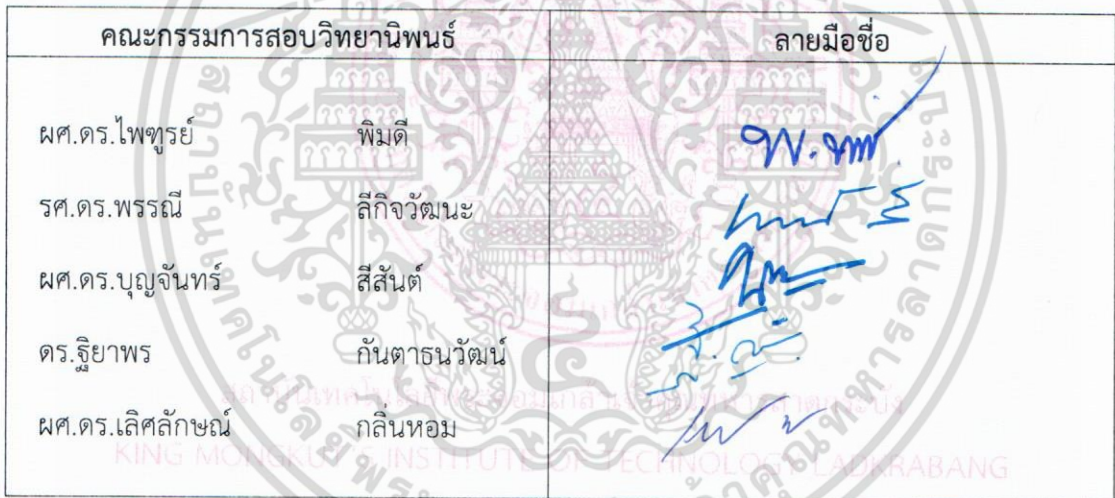 คณะกรรมการสอบวิทยานิพนธ์ ลายมือชื่อ
ผศ.ดร.ไพฑูรย์ พิมดี
รศ.ดร.พรรณี ลีกิจวัฒนะ
ผศ.ดร.บุญจันทร์ สีสันต์
ดร.ฐิยาพร กันตาธนวัฒน์
ผศ.ดร.เลิศลักษณ์ กลิ่นหอม
KING MONGKUT'S INSTITUTE OF TECHNOLOGY LADKRABANG